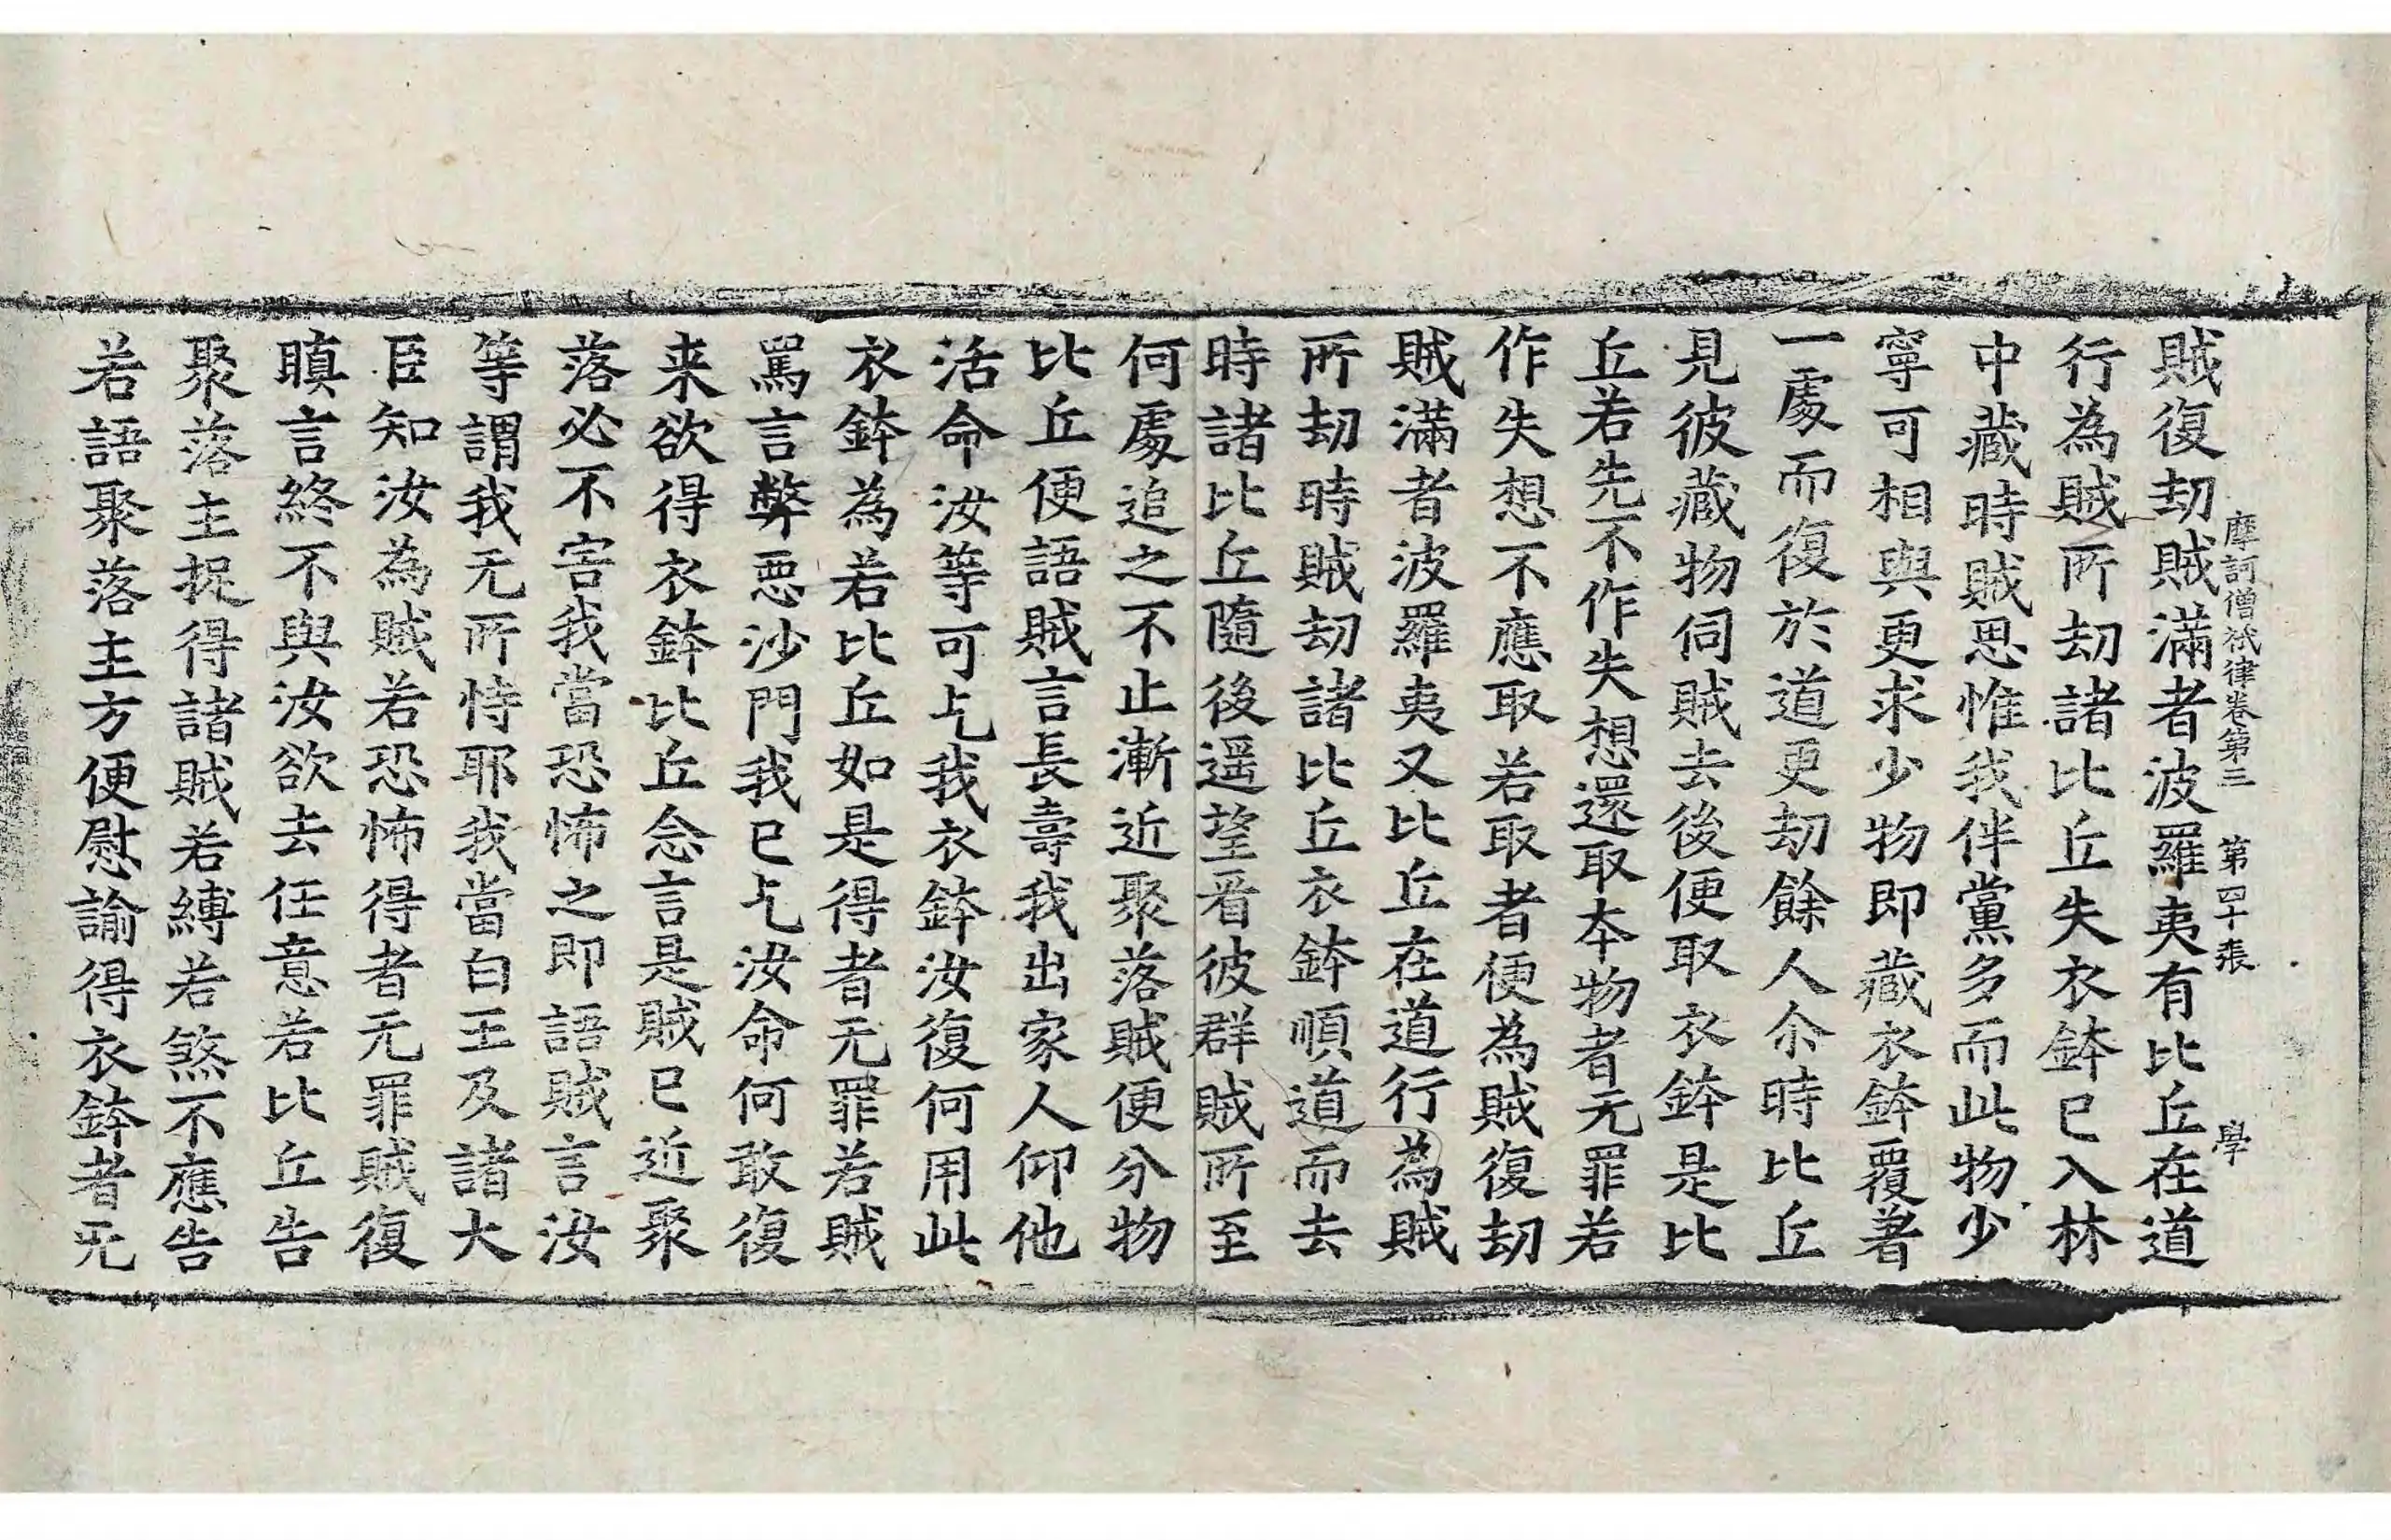 摩訶僧祇律卷第三 第四十張 學
賊復劫賊滿者波羅夷有比丘在道
行為賊所劫諸比丘失衣鉢已入林
中藏時賊思惟我伴黨多而此物少
寧可相與更求少物即藏衣鉢覆著
一處而復於道更劫餘人尒時比丘
見彼藏物伺賊去後便取衣鉢是比
丘若先不作失想還取本物者无罪若
作失想不應取若取者便為賊復劫
賊滿者波羅夷又比丘在道行為賊
所劫時賊劫諸比丘衣鉢順道而去
時諸比丘隨後遥望看彼群賊所至
何處追之不止漸近聚落賊便分物
比丘便語賊言長壽我出家人仰他
活命汝等可乞我衣鉢汝復何用此
衣鉢為若比丘如是得者无罪若賊
罵言弊惡沙門我已乞汝命何敢復
来欲得衣鉢比丘念言是賊已近聚
落必不害我當恐怖之即語賊言汝
等謂我无所恃耶我當白王及諸大
臣知汝為賊若恐怖得者无罪賊復
瞋言終不與汝欲去任意若比丘告
聚落主捉得諸賊若縛若煞不應告
若語聚落主方便慰諭得衣鉢者无